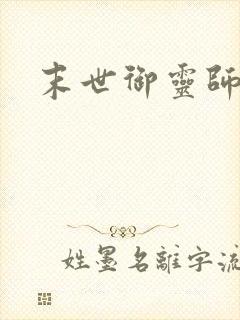 末世御靈師
姓墨名離字流